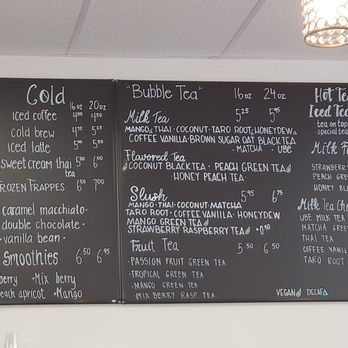 Cold
16 oz 20 oz
iced coffee 4 4
cold brew 4 5
iced latte 5 5
sweet cream thai tea 5 6
FROZEN FRAPPES 6 7
caramel macchiato
double chocolate
vanilla bean
Smoothies 6 6
berry · Mix berry
peach apricot · Mango
"Bubble Tea" 16 oz 24 oz
Milk Tea 5.25 5.95
MANGO · THAI · COCONUT · TARO ROOT · HONEYDEW
COFFEE VANILLA · BROWN SUGAR OAT BLACK TEA
· MATCHA · UBE
Flavored Tea
COCONUT BLACK TEA · PEACH GREEN TEA
HONEY PEACH TEA
Slush 5.95 6.75
MANGO · THAI · COCONUT · MATCHA
TARO ROOT · COFFEE VANILLA · HONEYDEW
MANGO GREEN TEA
STRAWBERRY RASPBERRY TEA +0.50
Fruit Tea 5.50 6.50
· PASSION FRUIT GREEN TEA
· TROPICAL GREEN TEA
· MANGO GREEN TEA
· MIX BERRY RASP. TEA
VEGAN DECAF
Hot Te
Iced Te
tea on tap
special tea
Milk F
STRAWBERRY
PEACH GREE
HONEY BLAC
Milk Tea Che
UBE MILK TEA
MATCHA GREE
THAI TEA
COFFEE VANIL
TARO ROOT